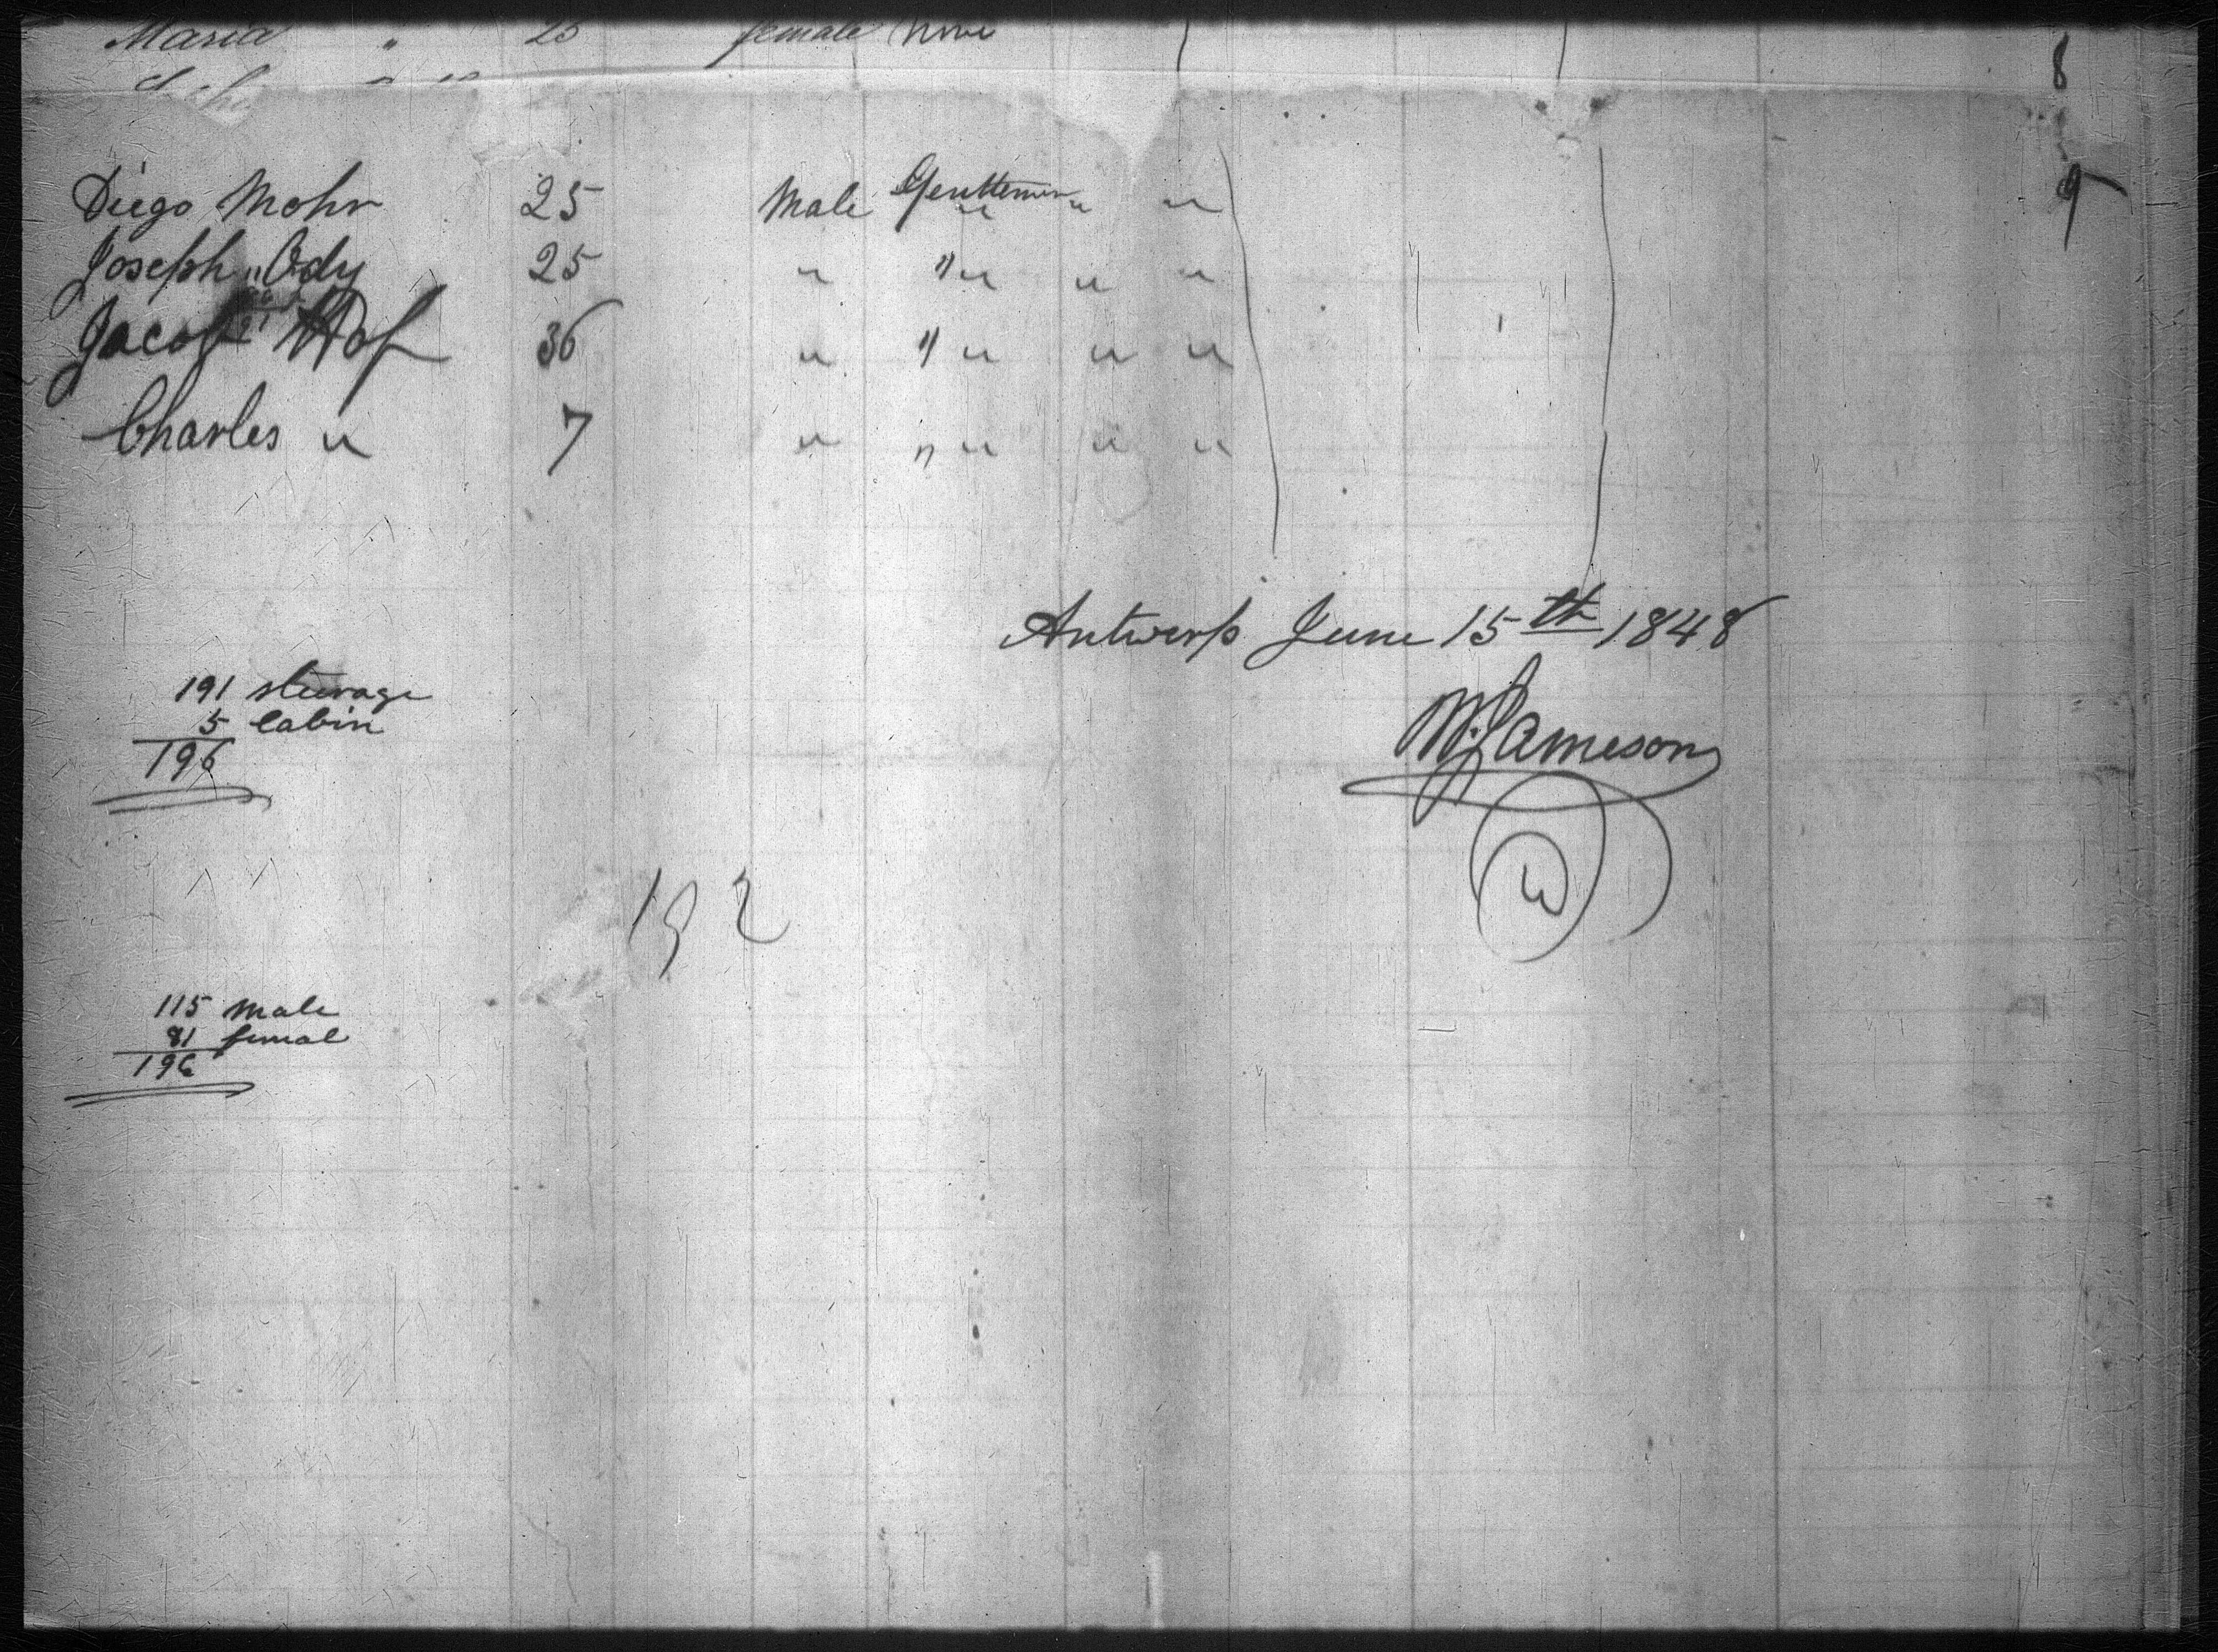 Maria " 25 female None
8
9
Diego Mohr 25 Male Gentlemen " " "
Joseph Ody 25 " " " " "
Jacob Hof 36 " " " " "
Charles " 7 " " " " "
Antwerp June 15th 1848
W. Jameson
191 steerage
5 Cabin
196
192
115 Male
81 femal
196